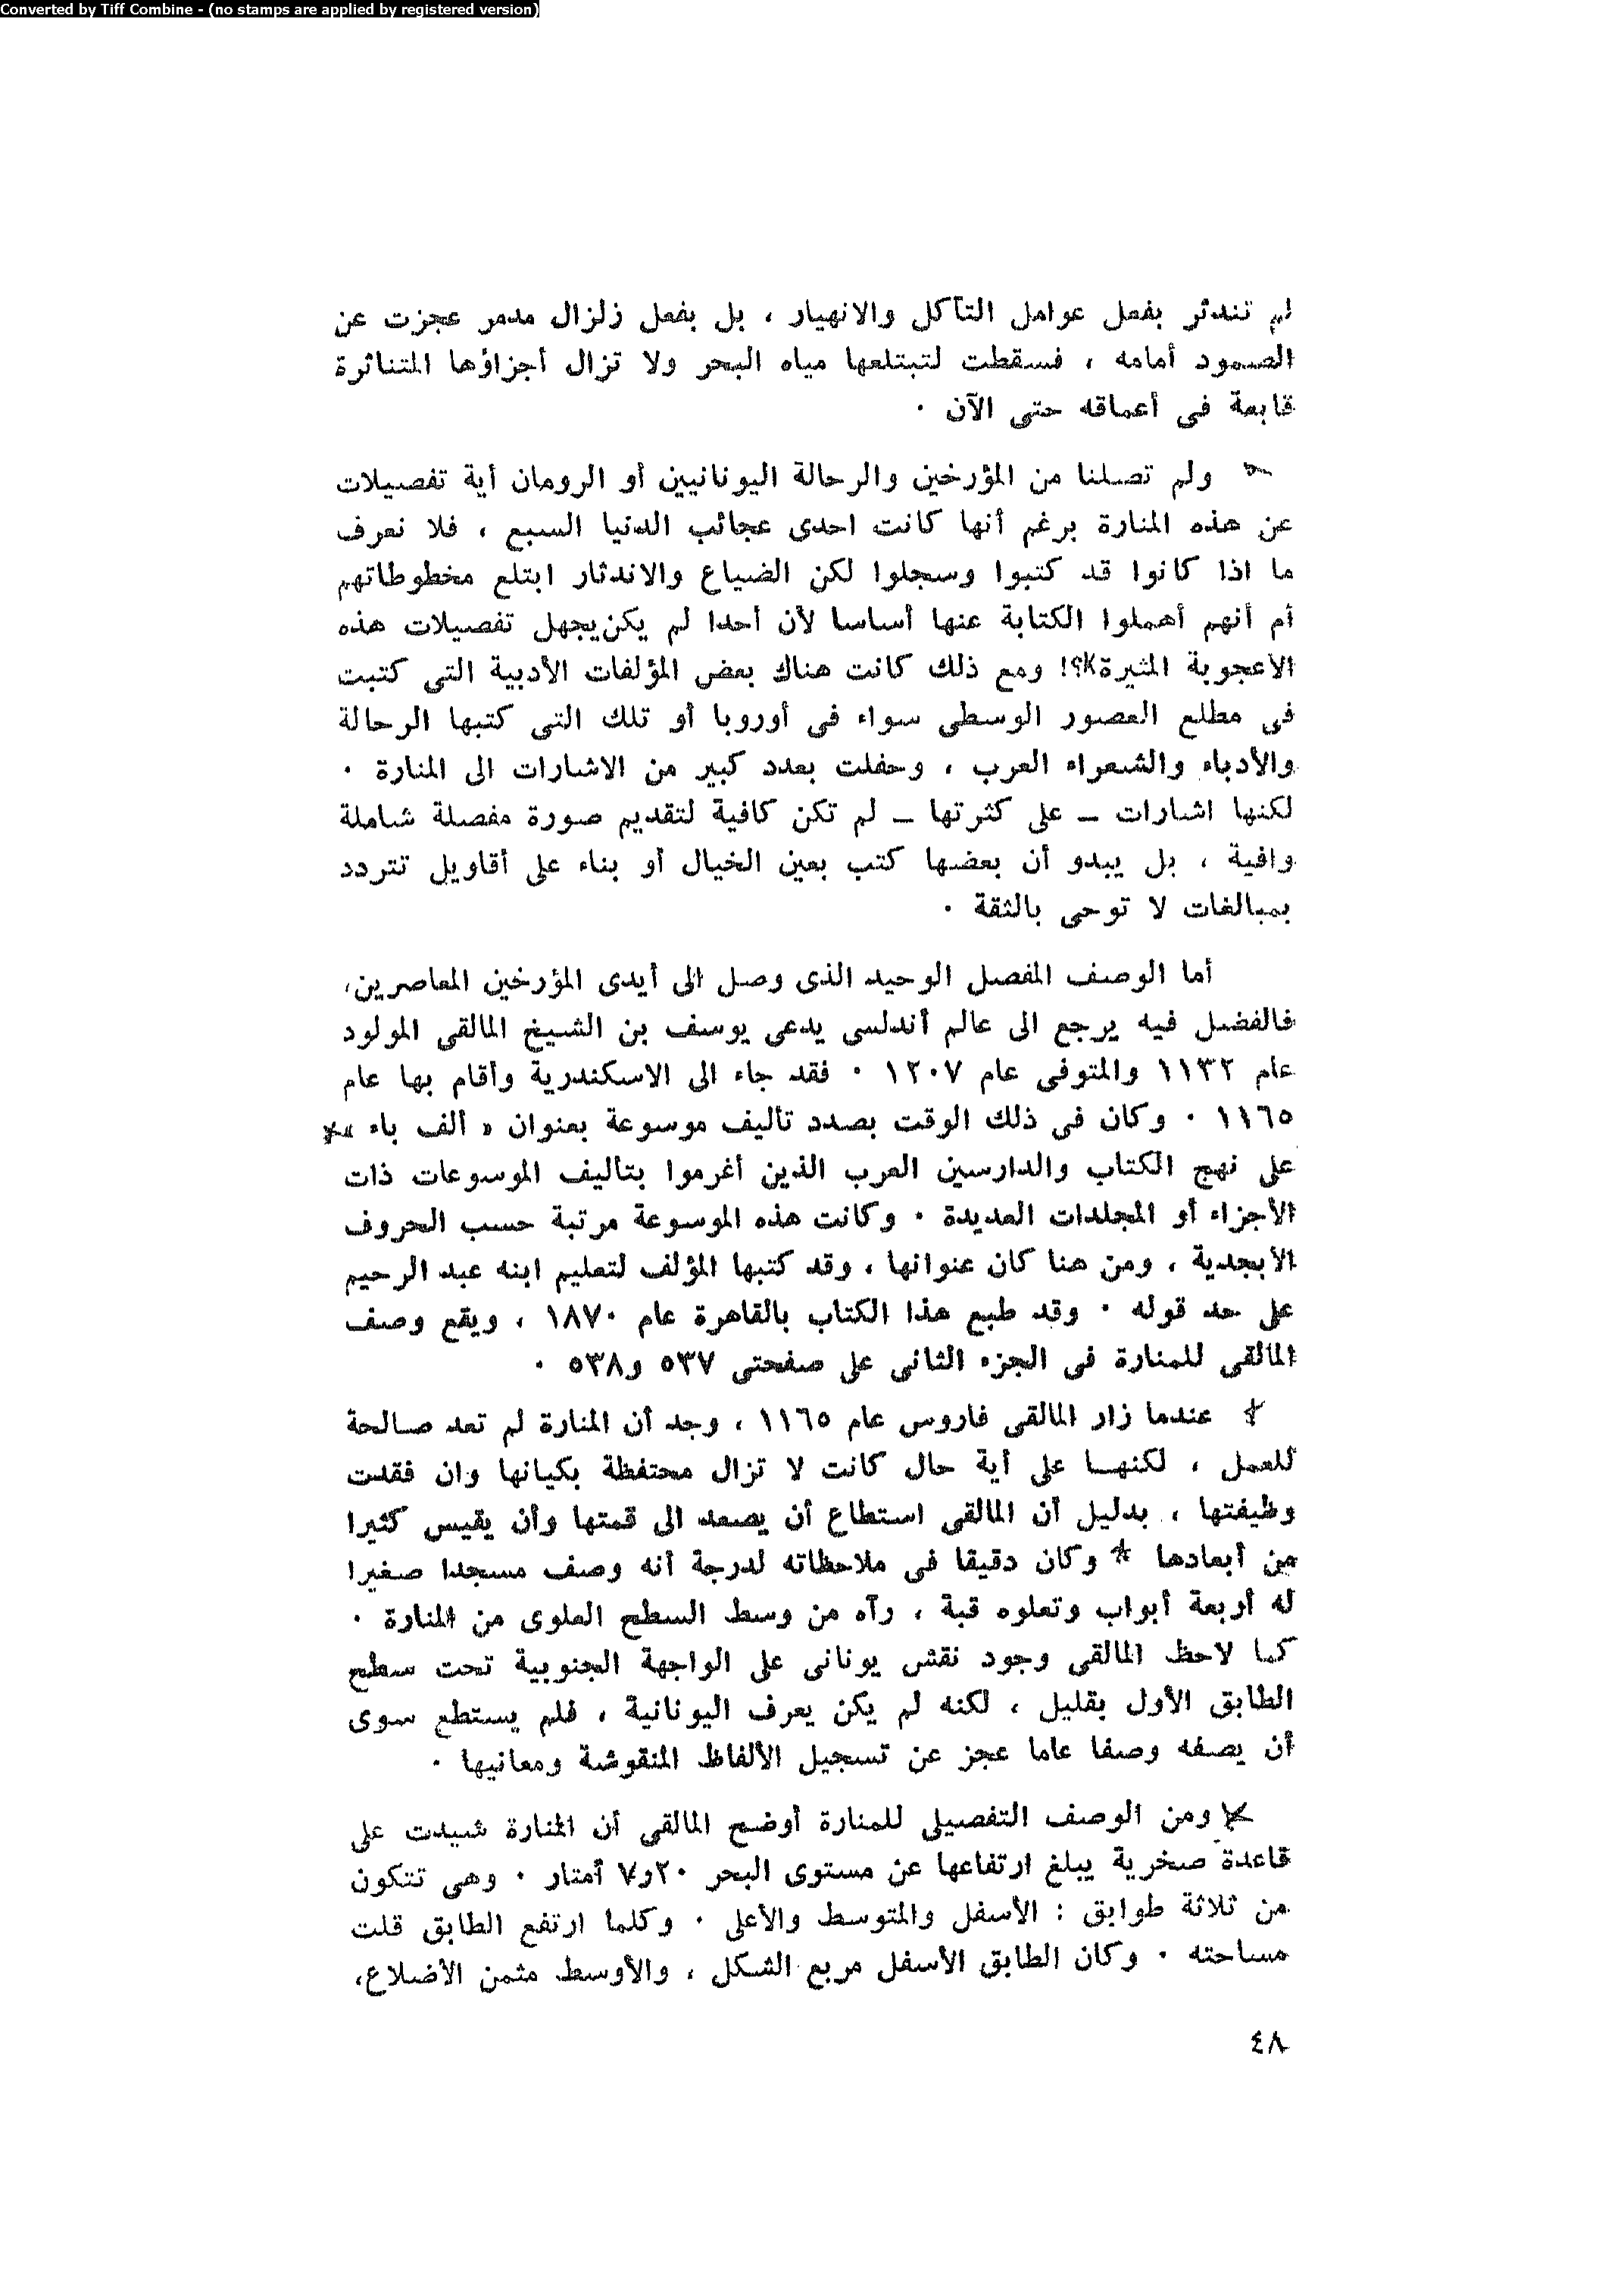 Converted by Tiff Combine - (no stamps are applied by registered version)
لم تندثر بفعل عوامل التآكل والانهيار ، بل بفعل زلزال مدمر عجزت عن
الصمود أمامه ، فسقطت لتبتلعها مياه البحر ولا تزال أجزاؤها المتناثرة
قابعة فى أعماقه حتى الآن ٠
ولم تصلنا من المؤرخين والرحالة اليونانيين أو الرومان أية تفصيلات
عن هذه المنارة برغم أنها كانت احدى عجائب الدنيا السبع ، فلا نعرف
ما اذا كانوا قد كتبوا وسجلوا لكن الضياع والاندثار ابتلع مخطوطاتهم
أم أنهم أهملوا الكتابة عنها أساسا لأن أحدا لم يكن يجهل تفصيلات هذه
الأعجوبة المثيرة ؟! ومع ذلك كانت هناك بعض المؤلفات الأدبية التى كتبت
فى مطلع العصور الوسطى سواء فى أوروبا أو تلك التى كتبها الرحالة
والأدباء والشعراء العرب ، وحفلت بعدد كبير من الاشارات الى المنارة ٠
لكنها اشارات – على كثرتها – لم تكن كافية لتقديم صورة مفصلة شاملة
وافية ، بل يبدو أن بعضها كتب بعين الخيال أو بناء على أقاويل تتردد
بمبالغات لا توحى بالثقة ٠
أما الوصف المفصل الوحيد الذى وصل الى أيدى المؤرخين المعاصرين،
فالفضل فيه يرجع الى عالم أندلسى يدعى يوسف بن الشيخ المالقى المولود
عام ١١٣٢ والمتوفى عام ١٢٠٧ ٠ فقد جاء الى الاسكندرية وأقام بها عام
١١٦٥ ٠ وكان فى ذلك الوقت بصدد تأليف موسوعة بعنوان « ألف باء »
على نهج الكتاب والدارسين العرب الذين أغرموا بتأليف الموسوعات ذات
الأجزاء أو المجلدات العديدة ٠ وكانت هذه الموسوعة مرتبة حسب الحروف
الأبجدية ، ومن هنا كان عنوانها ، وقد كتبها المؤلف لتعليم ابنه عبد الرحيم
على حد قوله ٠ وقد طبع هذا الكتاب بالقاهرة عام ١٨٧٠ ، ويقع وصف
المالقى للمنارة فى الجزء الثانى على صفحتى ٥٣٧ و٥٣٨ ٠
عندما زار المالقى فاروس عام ١١٦٥ ، وجد أن المنارة لم تعد صالحة
للعمل ، لكنها على أية حال كانت لا تزال محتفظة بكيانها وان فقدت
وظيفتها ، بدليل أن المالقى استطاع أن يصعد الى قمتها وأن يقيس كثيرا
من أبعادها * وكان دقيقا فى ملاحظاته لدرجة أنه وصف مسجدا صغيرا
له أربعة أبواب وتعلوه قبة ، رآه من وسط السطح العلوى من المنارة ٠
كما لاحظ المالقى وجود نقش يونانى على الواجهة الجنوبية تحت سطح
الطابق الأول بقليل ، لكنه لم يكن يعرف اليونانية ، فلم يستطع سوى
أن يصفه وصفا عاما عجز عن تسجيل الألفاظ المنقوشة ومعانيها ٠
ومن الوصف التفصيلى للمنارة أوضح المالقى أن المنارة شيدت على
قاعدة صخرية يبلغ ارتفاعها عن مستوى البحر ٢٠ر٧ أمتار ٠ وهى تتكون
من ثلاثة طوابق : الأسفل والمتوسط والأعلى ٠ وكلما ارتفع الطابق قلت
مساحته ٠ وكان الطابق الأسفل مربع الشكل ، والأوسط مثمن الأضلاع،
٤٨